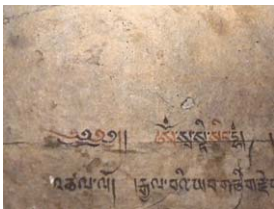 ༄༅༅།། ཨོཾ་སྭ་སྟི་སིདྡྷཾ།
འཚལ་ལོ། །རྒྱལ་བའི་ཡབ་གཅིག་